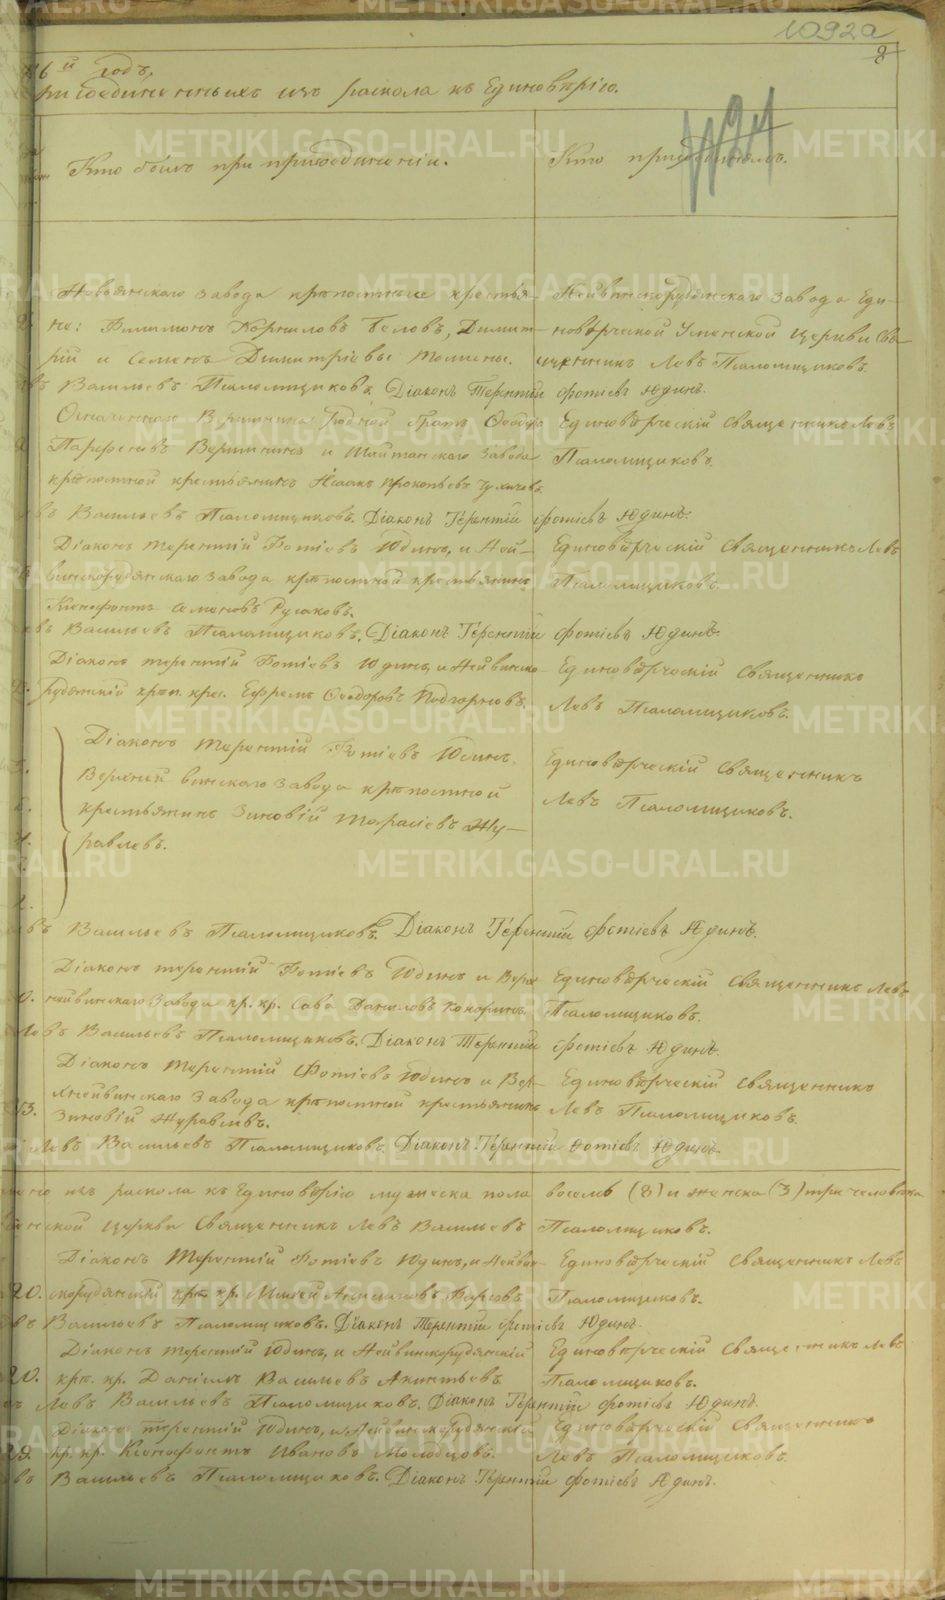 1092а
8
6й годъ,
присоединенныхъ изъ раскола къ Единоверію.
Кто былъ при присоединеніи.
Кто присоединялъ.
завода крепостные крестья-
не: Филимонъ Корниловъ Беловъ, Димит-
рій и Семенъ Димитріевы
Нейвинскорудянскаго завода Еди-
новѣрческой Успенской Церкви Свя-
щенникъ Левъ Псаломщиковъ
въ Васильевъ Псаломщиковъ. Діаконъ Терентій Фотіевъ Юдинъ.
родной братъ
и Шайтанскаго завода
крѣпостной крестьянинъ Исаакъ Прокопьевъ
Единовѣрческій Священникъ Левъ
Псаломщиковъ.
въ Васильевъ Псаломщиковъ. Діаконъ Терентій Фотіевъ Юдинъ.
Діаконъ Терентій Фотіевъ Юдинъ, и Ней-
винскорудянскаго завода крѣпостной крестьянинъ
Ксенофонтъ Семеновъ Русаковъ.
Единовѣрческій Священникъ Левъ
Псаломщиковъ.
въ Васильевъ Псаломщиковъ. Діаконъ Терентій Фотіевъ Юдинъ.
Діаконъ Терентій Фотіевъ Юдинъ, и Нейвинско-
рудянскій крѣп. крес. Ефремъ Ѳеодоровъ
Единовѣрческій Священникъ
Левъ Псаломщиковъ.
Діаконъ Терентій Фотіевъ Юдинъ.
Верхней винскаго завода крѣпостной
крестьянинъ Зиновій Тарасіевъ Жу-
равлевъ.
Единовѣрческій Священникъ
Левъ Псаломщиковъ.
въ Васильевъ Псаломщиковъ. Діаконъ Терентій Фотіевъ Юдинъ.
Діаконъ Терентій Фотіевъ Юдинъ и Верх
нейвинскаго завода кр. кр. Сава Даниловъ
Единовѣрческій Священникъ Левъ
Псаломщиковъ.
Левъ Васильевъ Псаломщиковъ. Діаконъ Терентій Фотіевъ Юдинъ.
Діаконъ Терентій Фотіевъ Юдинъ и Вер-
хнейвинскаго завода крѣпостной крестьянинъ
Зиновій Журавлевъ.
Единовѣрческій Священникъ
Левъ Псаломщиковъ.
Левъ Васильевъ Псаломщиковъ. Діаконъ Терентій Фотіевъ Юдинъ.
изъ раскола къ Единовѣрію мужеска пола восемь (8) и женска (3) три человѣка
Церкви Священникъ Левъ Васильевъ Псаломщиковъ.
Діаконъ Терентій Фотіевъ Юдинъ, и Нейвин-
20. скорудянскій крѣ. кр.
Единовѣрческій Священникъ Левъ
Псаломщиковъ.
въ Васильевъ Псаломщиковъ. Діаконъ Терентій Фотіевъ Юдинъ.
Діаконъ Терентій Юдинъ, и Нейвинскорудянскій
20. крѣп. кр. Даніилъ Васильевъ
Единовѣрческій Священникъ Левъ
Псаломщиковъ.
Левъ Васильевъ Псаломщиковъ. Діаконъ Терентій Фотіевъ Юдинъ.
Діаконъ Терентій Юдинъ, и Нейвинскорудянскій
кр. кр. Ксенофонтъ Ивановъ Молодцовъ.
Единовѣрческій Священникъ
Левъ Псаломщиковъ.
въ Васильевъ Псаломщиковъ. Діаконъ Терентій Фотіевъ Юдинъ.
METRIKI.GASO-URAL.RU